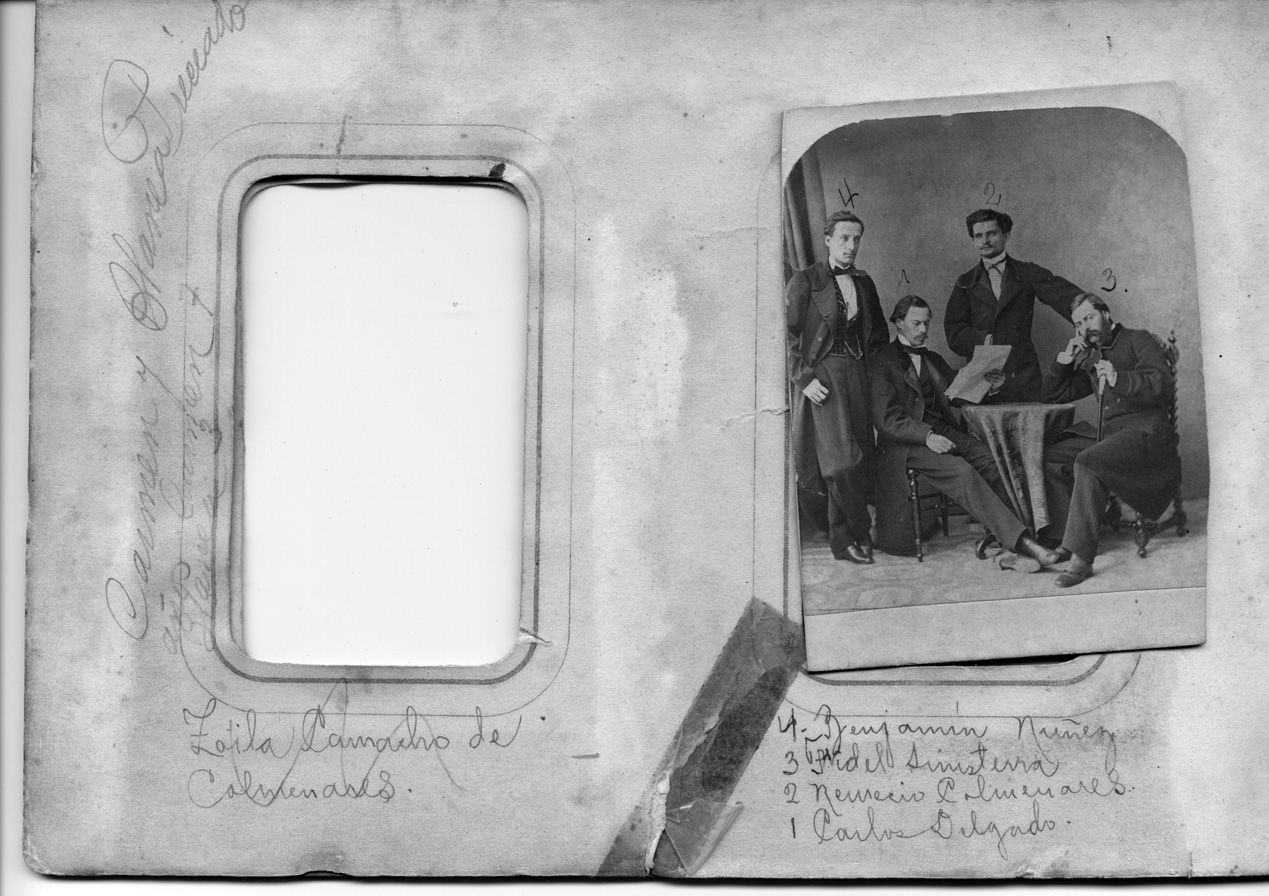 Carmen y Blanca Preciado
Blanca Carmen +
Zoila Camacho de
Colmenares.
4
2
1
3.
4- Benjamín Nuñez
3 Fidel Sinisterra
2 Nemecio Colmenares.
1 Carlos Delgado.